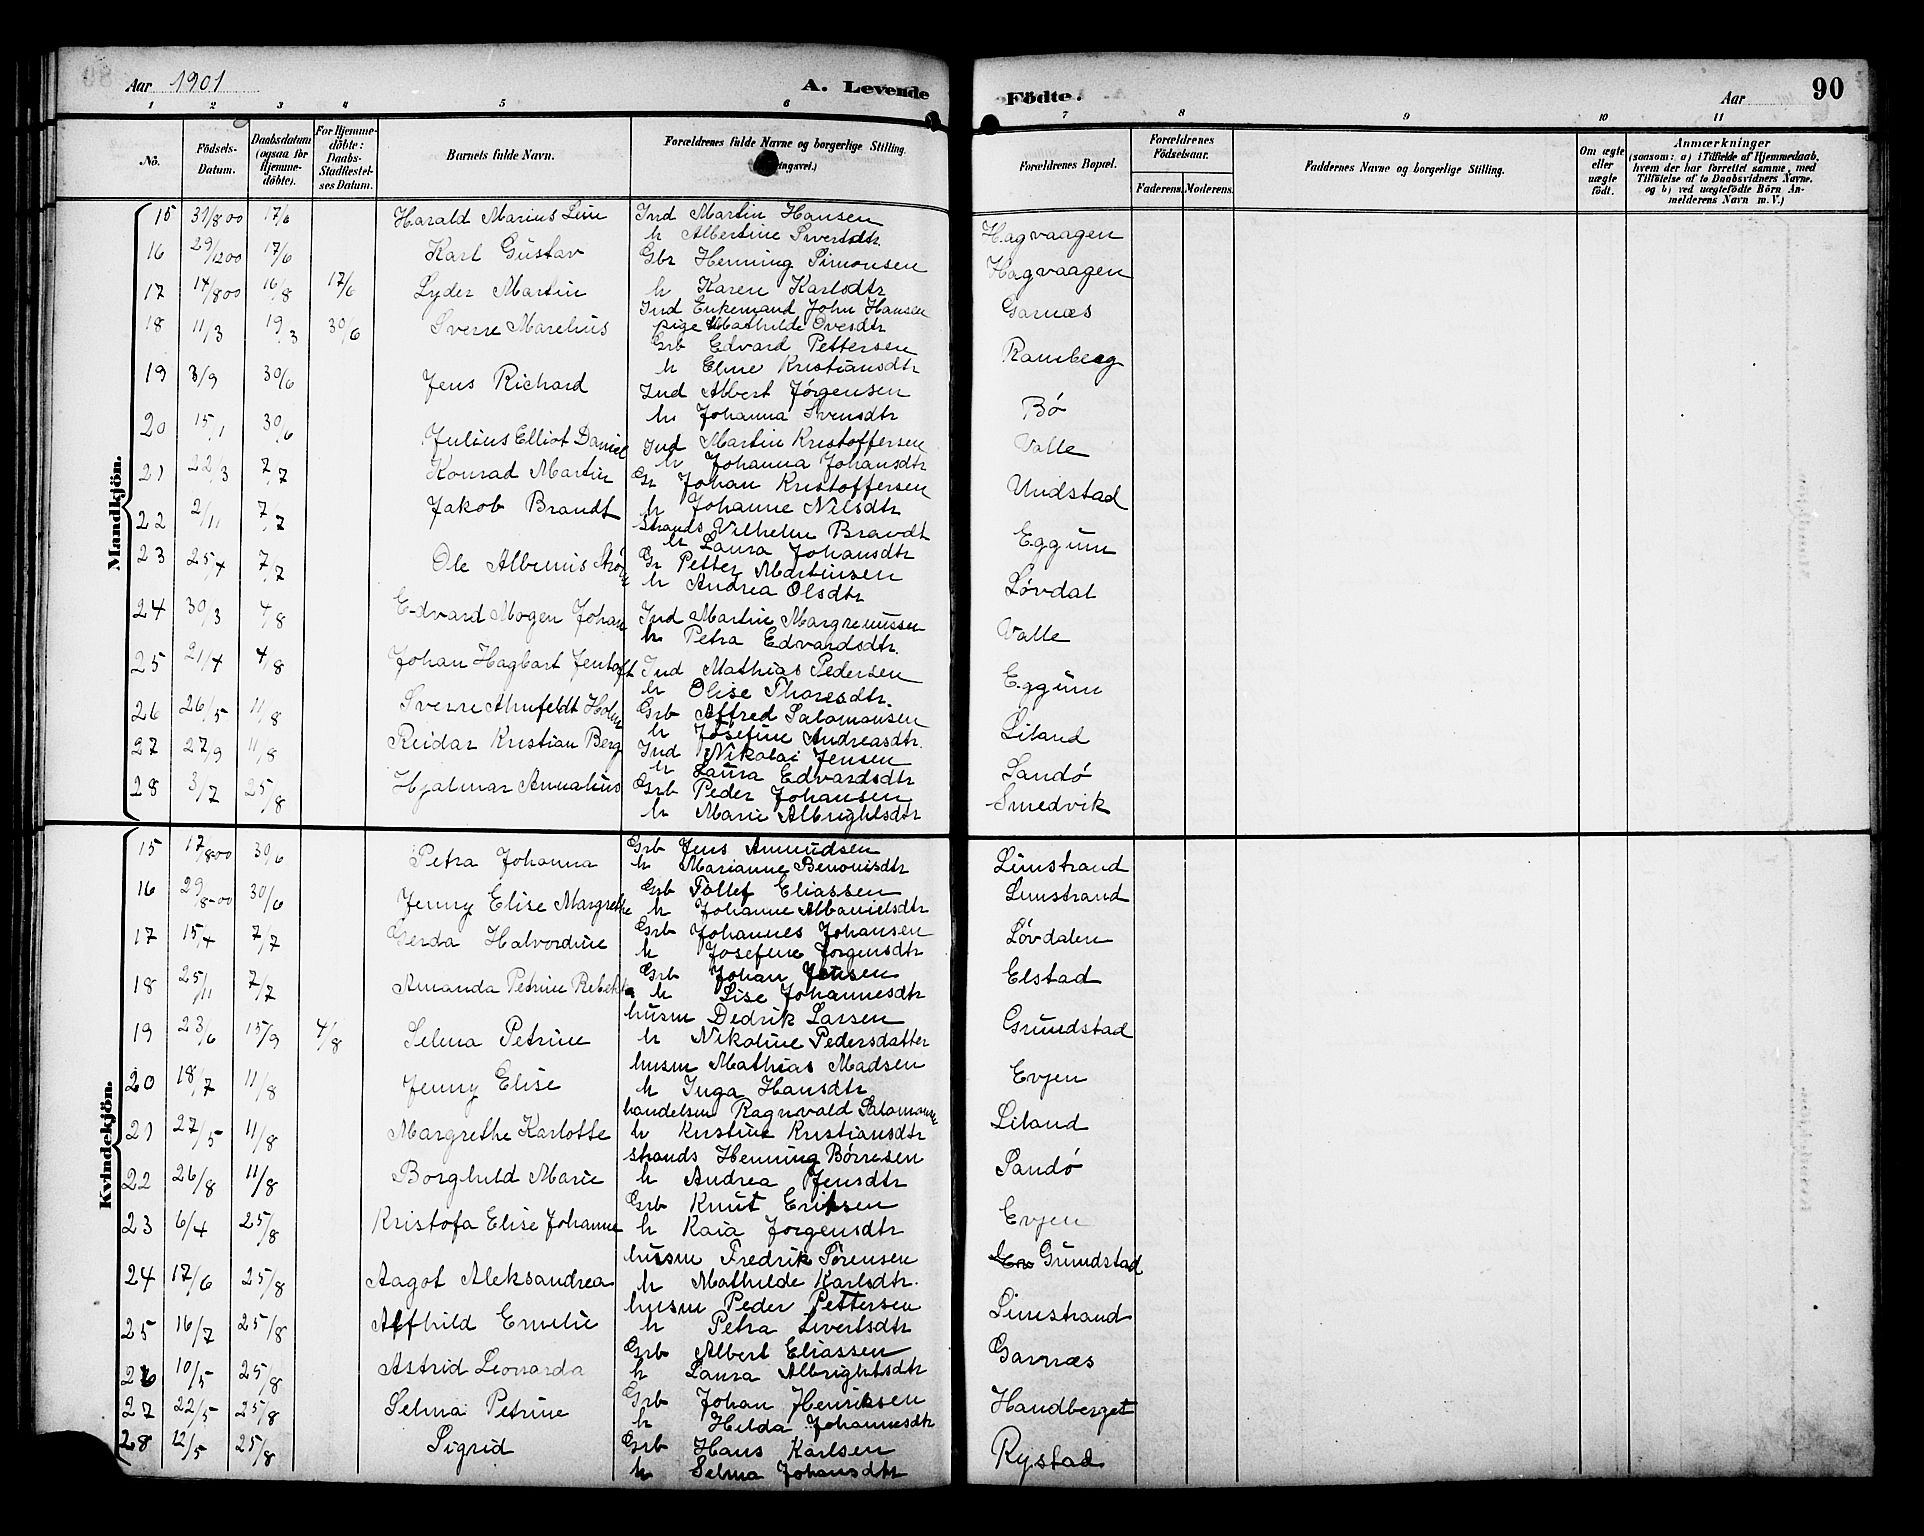 Aar 1901
A. Levende Födte.
Aar
90
1 2 3 4 5 6 7 8 9 10 11
No.
Födsels-Datum.
Daabsdatum (ogsaa for Hjemme-döbte).
For Hjemme-döbte: Daabs-Stadfæstel-ses Datum.
Barnets fulde Navn.
Forældrenes fulde Navne og borgerlige Stilling.
Forældrenes Bopæl.
Forældrenes Födselsaar.
Faderens. Moderens.
Faddernes Navne og borgerlige Stilling.
Om ægte eller uægte födt.
Anmærkninger
(saasom: a) i Tilfælde af Hjemmedaab, hvem der har forrettet samme, med Tilföielse af to Daabsvidners Navne, og b) ved uægtefödte Börn An-melderens Navn m. V.)
Mandkjön.
15 31/8 00 17/6 Harald Marius Ind Martin Hansen Hagvaagen
h Albertine Sivertsdtr
16 29/12 00 17/6 Karl Gustav Gbr Henning Simonsen Hagvaagen
h Karen Karlsdtr
17 14/8 00 16/8 17/6 Lyder Martin Ind Enkemand John Hansen Garnæs
pige Mathilde Ovesdtr
18 11/3 19/3 30/6 Sverre Marelius Grb Edvard Pettersen Ramberg
h Eline Kristiansdtr
19 3/9 30/6 Jens Richard Ind Albert Jørgensen Bö
h Johanna Svensdtr
20 15/1 30/6 Julius Elliot Daniel Ind Martin Kristoffersen Valle
h Johanna Johansdtr
21 22/3 7/7 Konrad Martin Gr Johan Kristoffersen Undstad
h Johanne Nilsdtr
22 2/11 7/7 Jakob Brandt Strands Vilhelm Brandt Eggum
h Laura Johansdtr
23 25/4 7/7 Ole Albinus Gr Petter Martinsen Lövdal
h Andrea Olsdtr
24 30/3 4/8 Edvard Mogen Johan Ind Martin Margremussen Valle
h Petra Edvardsdtr.
25 21/4 4/8 Johan Hagbart Jentoft Ind Mathias Pedersen Eggum
h Olise Thoresdtr.
26 26/5 11/8 Sverre Ahnfeldt Holm Grb Alfred Salamonsen Liland
h Josefine Andreasdtr.
27 27/9 11/8 Reidar Kristian Berg Ind Nikolai Jensen Sandö
h Laura Edvardsdtr
28 3/7 25/8 Hjalmar Annalius Grb Peder Johansen Smedvik
h Marie Albrightsdtr
Kvindekjön.
15 17/8-00 30/6 Petra Johanna Grb Jens Ammudsen Limstrand
h Marianne Benonisdtr
16 29/8-00 30/6 Jenny Elise Margrethe Grb Tollef Eliassen Limstrand
h Johanne Albanielsdtr
17 15/4 7/7 Gerda Halvordine Grb Johannes Johansen Lövdalen
h Josefine Jørgensdtr
18 25/11 7/7 Amanda Petrine Rebekka Grb Johan Jensen Elstad
h Lise Johannesdtr
19 23/6 15/9 4/8 Selma Petrine husm Dedrik Larsen Grundstad
h Nikoline Pedersdatter
20 18/7 11/8 Jenny Elise husm Mathias Madsen Evjen
h Inga Hansdtr
21 27/5 11/8 Margrethe Karlotte handelsm Ragnvald Salamonse Liland
h Kristine Kristiansdtr
22 26/8 11/8 Borghild Marie strands Henning Børresen Sandö
h Andrea Jensdtr
23 6/4 25/8 Kristofa Elise Johanne Grb Knut Eriksen Evjen
h Kaia Jorgensdtr
24 17/6 25/8 Aagot Aleksandrea husm Fredrik Sörensen Grundstad
h Mathilde Karlsdtr.
25 16/7 25/8 Alfhild Emelie husm Peder Pettersen Limstrand
h Petra Sivertsdtr
26 10/5 25/8 Astrid Leonarda Grb Albert Eliassen Garnæs
h Laura Albrightsdtr
27 22/5 25/8 Selma Petrine Grb Johan Henriksen Handberget
h Hilda Johannesdtr
28 12/5 25/8 Sigrid Grb Hans Karlsen Rystad
h Selma Johansdtr